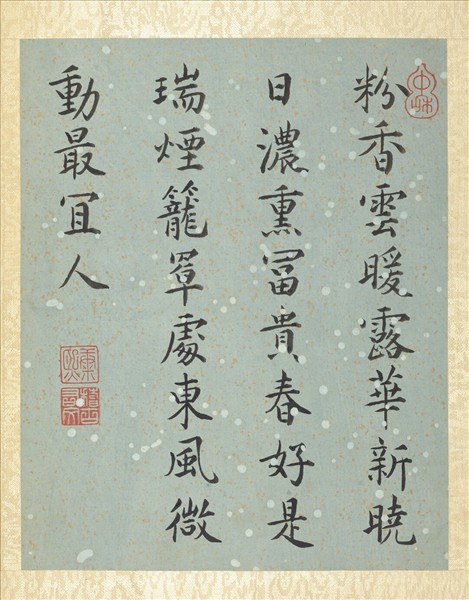 中和
粉香雲暖露華新曉
日濃熏冨貴春好是
瑞煙籠罩處東風微
動最冝人
康熙